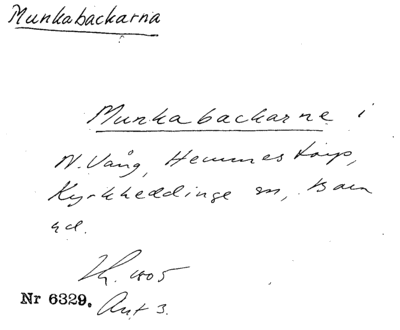 Munkabackarna
Munkabackarne i
N. Vång, Hemmestorp,
Kyrkheddinge sn, Bara
hd.
1805
Nr 6329. Akt 3.